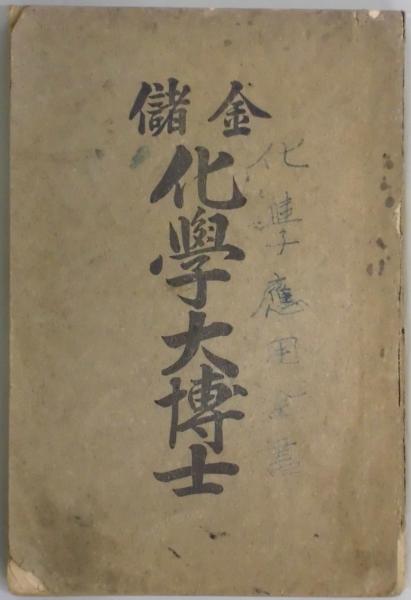 金儲
化學大博士
化學應用全書